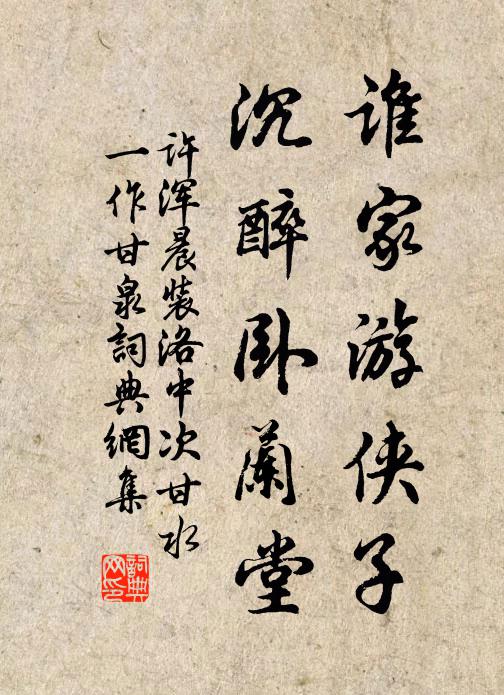 谁家游侠子
沉醉卧蘭堂
许浑晨装洛中次甘水
一作甘泉詞典網集
詞典网印